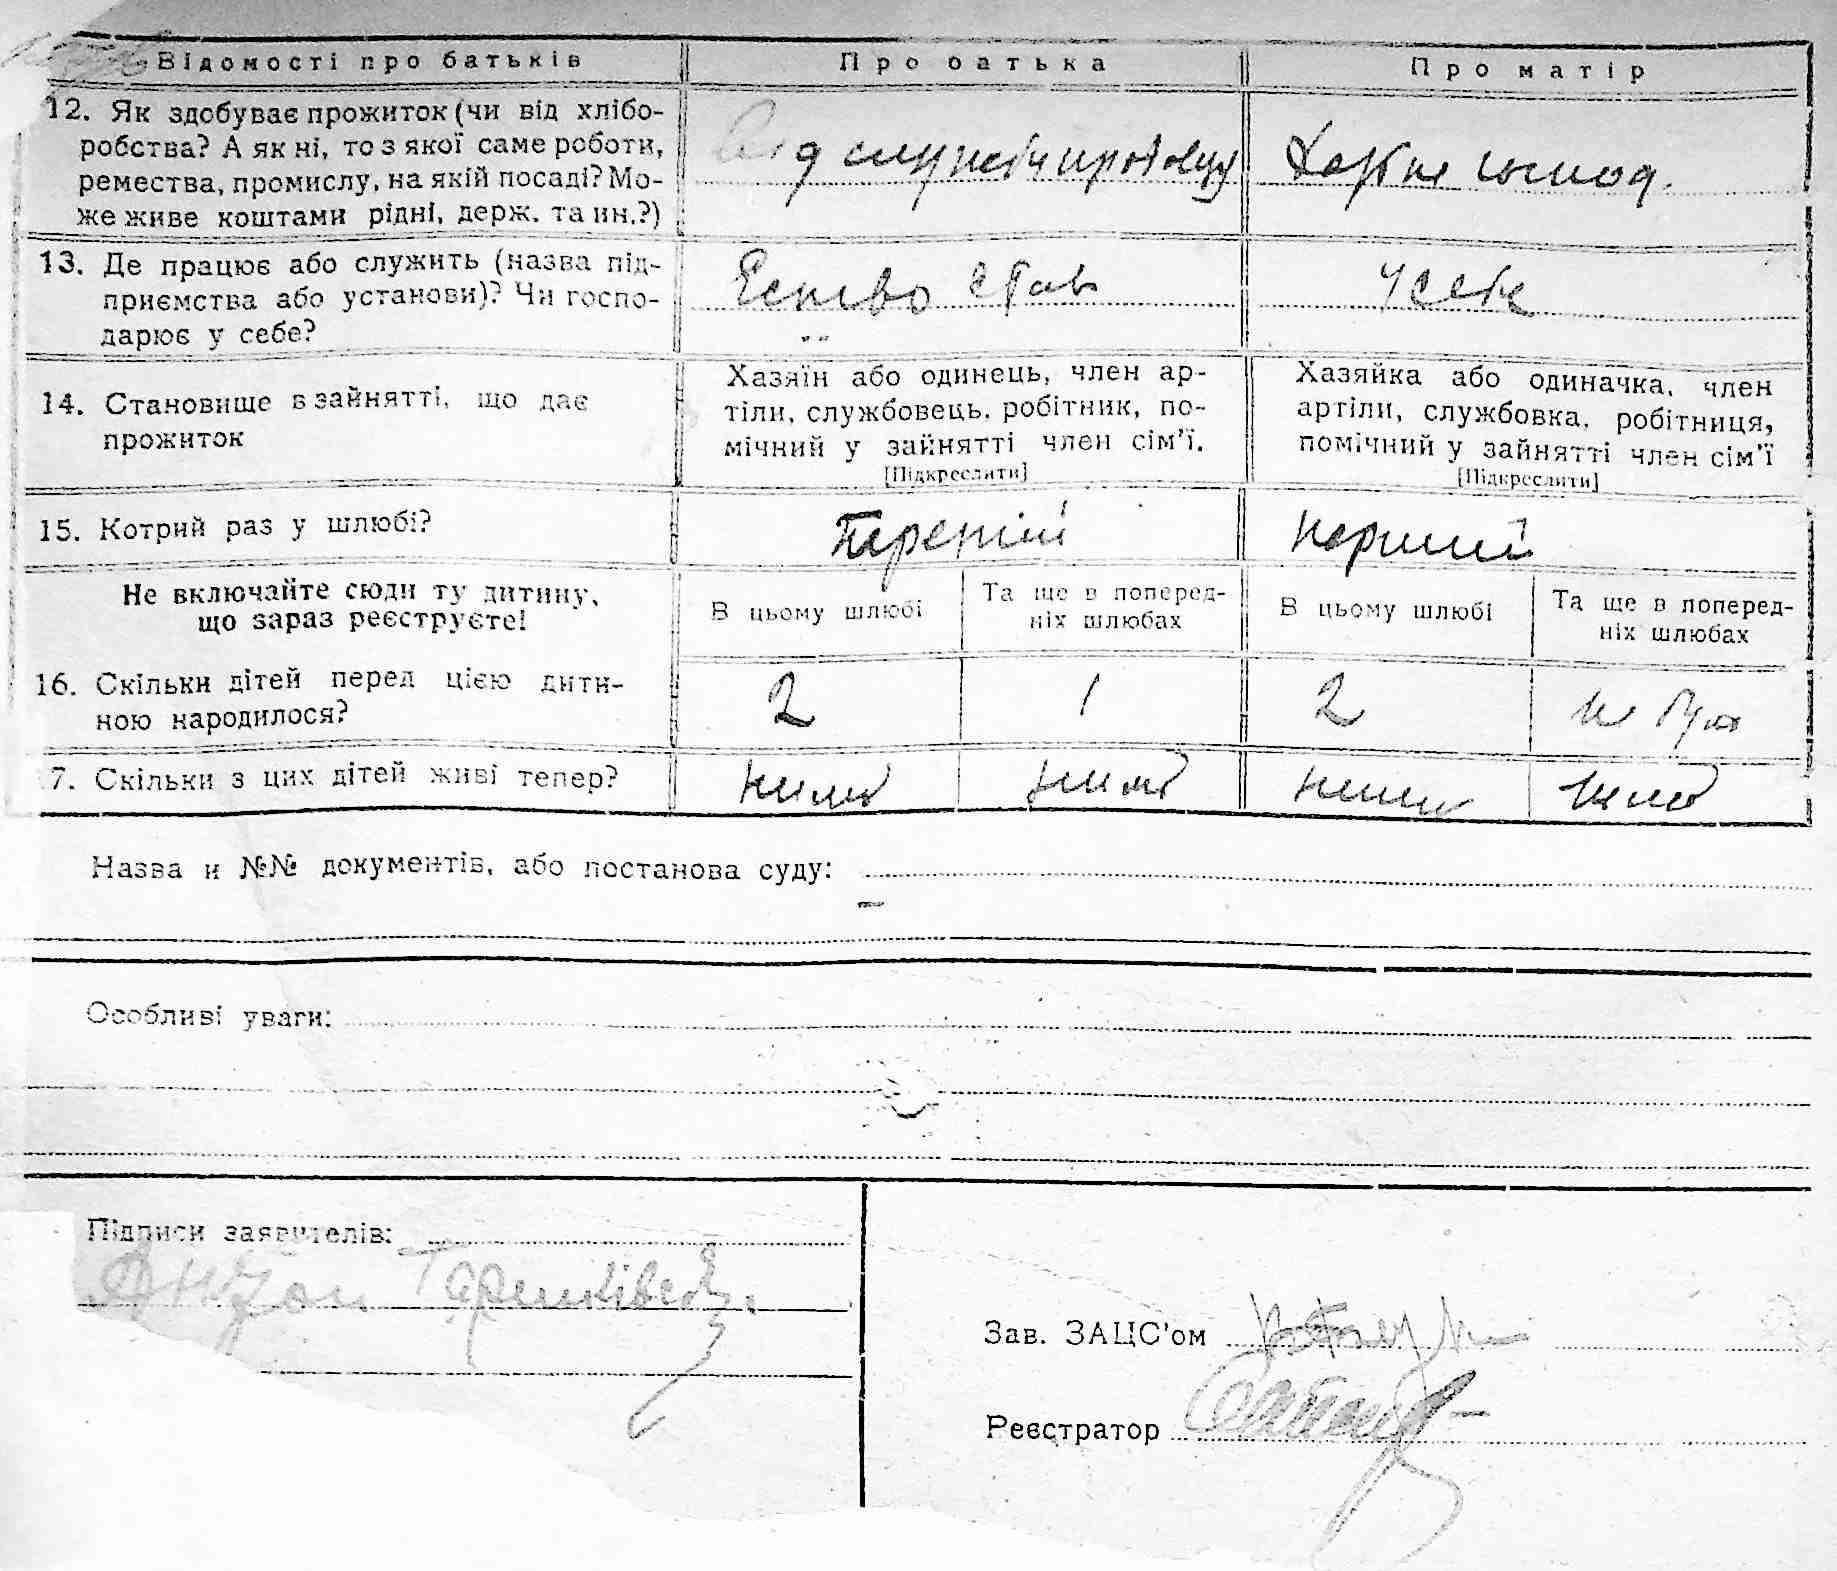 Відомості про батьків
Про батька
Про матір
12. Як здобуває прожиток (чи від хлібо-
робства? А як ні, то з якої саме роботи,
ремества, промислу, на якій посаді? Мо-
же живе коштами рідні, держ. та ин.?)
Від служби
13. Де працює або служить (назва під-
приємства або установи)? Чи госпо-
дарює у себе?
став
у себе
14. Становище в зайнятті, що дає
прожиток
Хазяїн або одинець, член ар-
тіли, службовець, робітник, по-
мічний у зайнятті член сім’ї.
[Підкреслити]
Хазяйка або одиначка, член
артіли, службовка, робітниця,
помічний у зайнятті член сім’ї
[Підкреслити]
15. Котрий раз у шлюбі?
перший
Не включайте сюди ту дитину,
що зараз реєструєте!
В цьому шлюбі
Та ще в поперед-
ніх шлюбах
В цьому шлюбі
Та ще в поперед-
ніх шлюбах
16. Скільки дітей перед цією дити-
ною народилося?
2
1
2
не
7. Скільки з цих дітей живі тепер?
Назва и №№ документів, або постанова суду:
–
Особливі уваги:
Підписи заявителів:
Антон
Зав. ЗАЦС’ом
Реєстратор